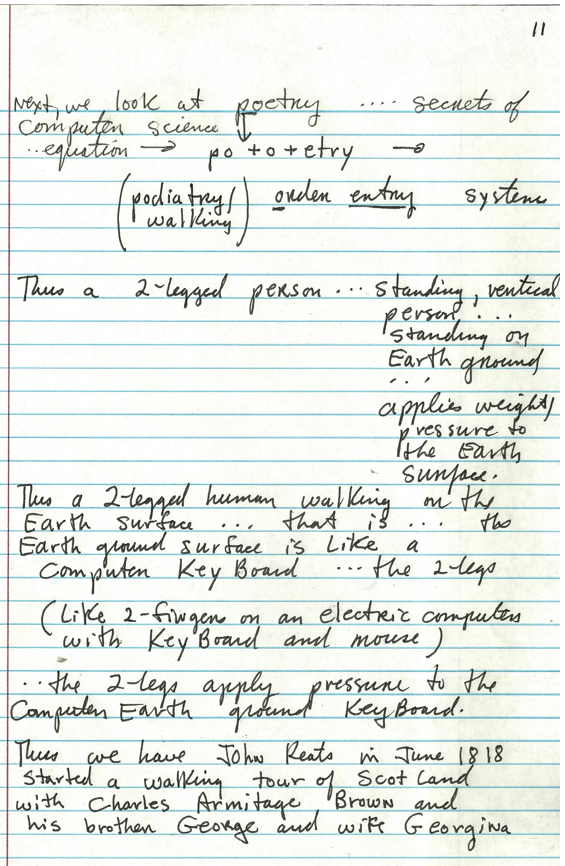 11
Next, we look at poetry .... secrets of
Computer science
..equation → po + o + etry →
(podiatry/ walking) order entry system
Thus a 2-legged person ... standing, vertical
person ...
standing on
Earth ground
...
applies weight/
pressure to
the Earth
surface.
Thus a 2-legged human walking on the
Earth surface ... that is ... the
Earth ground surface is Like a
Computer KeyBoard ... the 2-legs
(Like 2-fingers on an electric computer
with KeyBoard and mouse)
..the 2-legs apply pressure to the
Computer Earth ground KeyBoard.
Thus we have John Keats in June 1818
started a walking tour of Scotland
with Charles Armitage Brown and
his brother George and wife Georgina